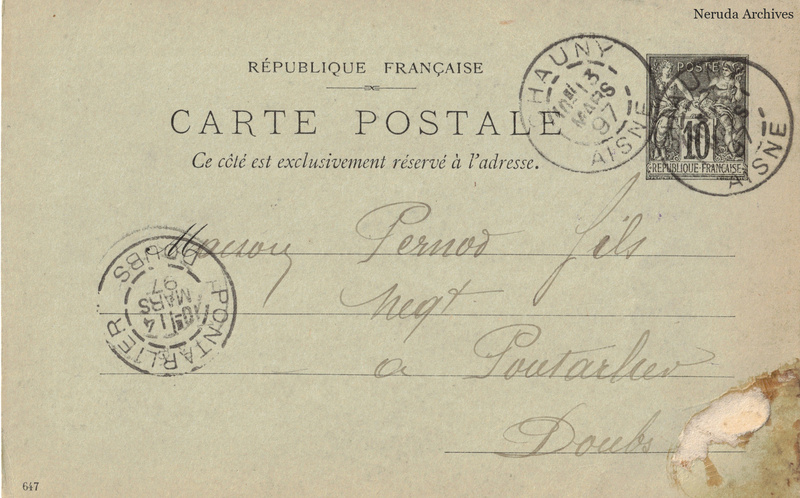 Neruda Archives
RÉPUBLIQUE FRANÇAISE
CARTE POSTALE
Ce côté est exclusivement réservé à l'adresse.
CHAUNY
13
MARS
97
AISNE
POSTES
10
REPUBLIQUE FRANÇAISE
CHAUNY
AISNE
Maison Pernod fils
Negt
a Pontarlier
Doubs
PONTARLIER
14
MARS
97
DOUBS
647